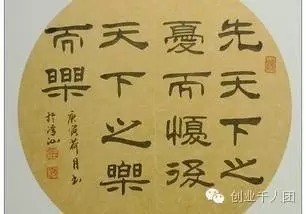 先天下之
憂而懮後
天下之樂
而樂
庚寅荷月书
於
创业千人团